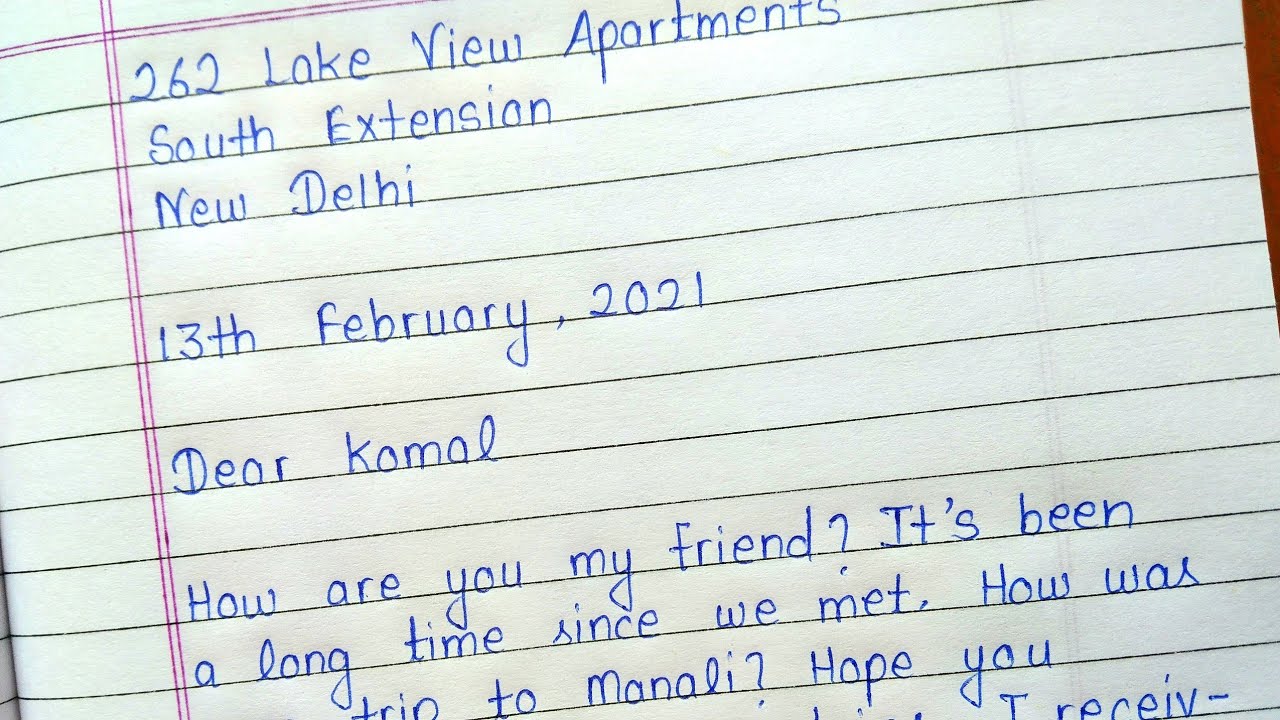 262 Lake View Apartments
South Extension
New Delhi
13th February, 2021
Dear Komal
How are you my friend? It's been
a long time since we met. How was
trip to Manali? Hope you
I receiv-